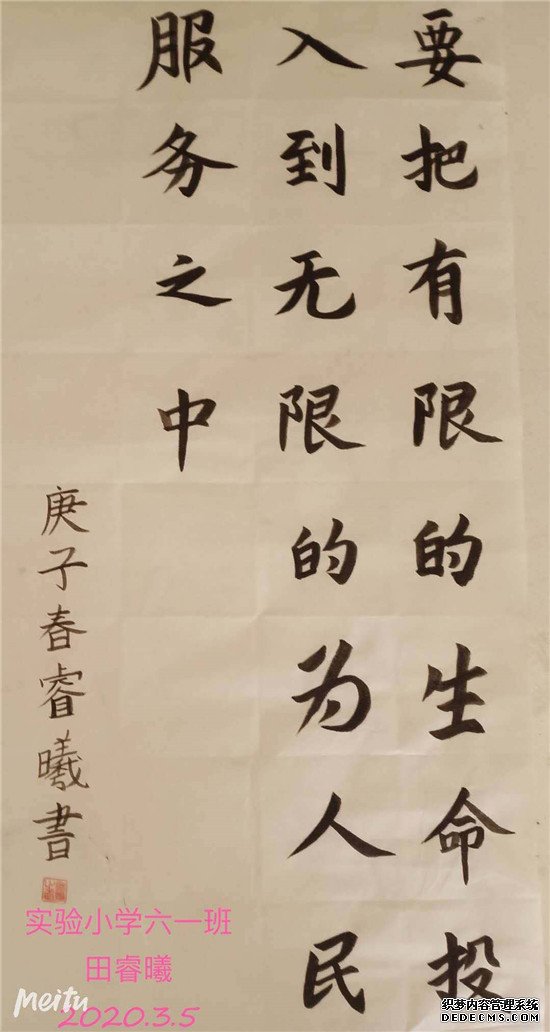 要把有限的生命投
入到无限的为人民
服务之中
庚子春睿曦書
实验小学六一班
田睿曦
2020.3.5
meitu
织梦内容管理系统
DEDECMS.COM